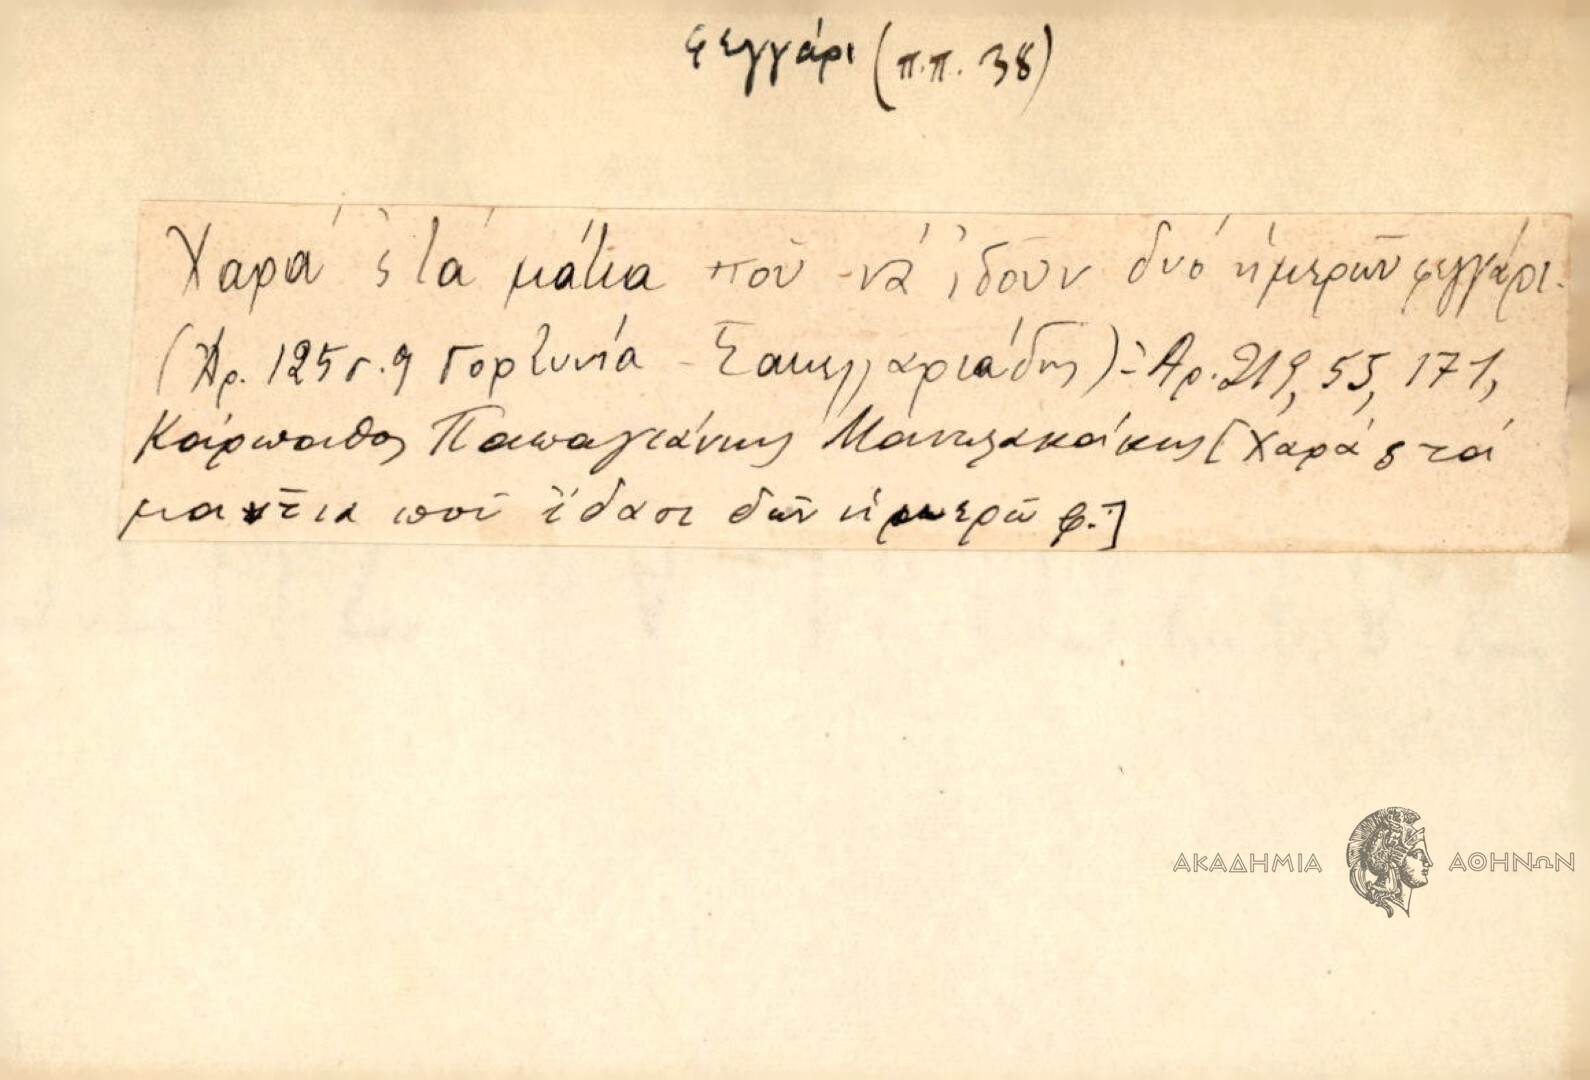 φεγγάρι (π.π. 38)
Χαρά 'ς τά μάτια ποῦ νά ἰδοῦν δυό ἡμερῶν φεγγάρι.
(Ἀρ. 125 Γορτυνία - Σακελλαριάδης) = Ἀρ. 219, 55, 171,
Κάρπαθος Παπαγιάννης Μανωλακάκης [Χαρά 'ς τά
μάτια ποῦ ἴδασι δυῶ ἡμερῶ φ.]
ΑΚΑΔΗΜΙΑ ΑΘΗΝΩΝ